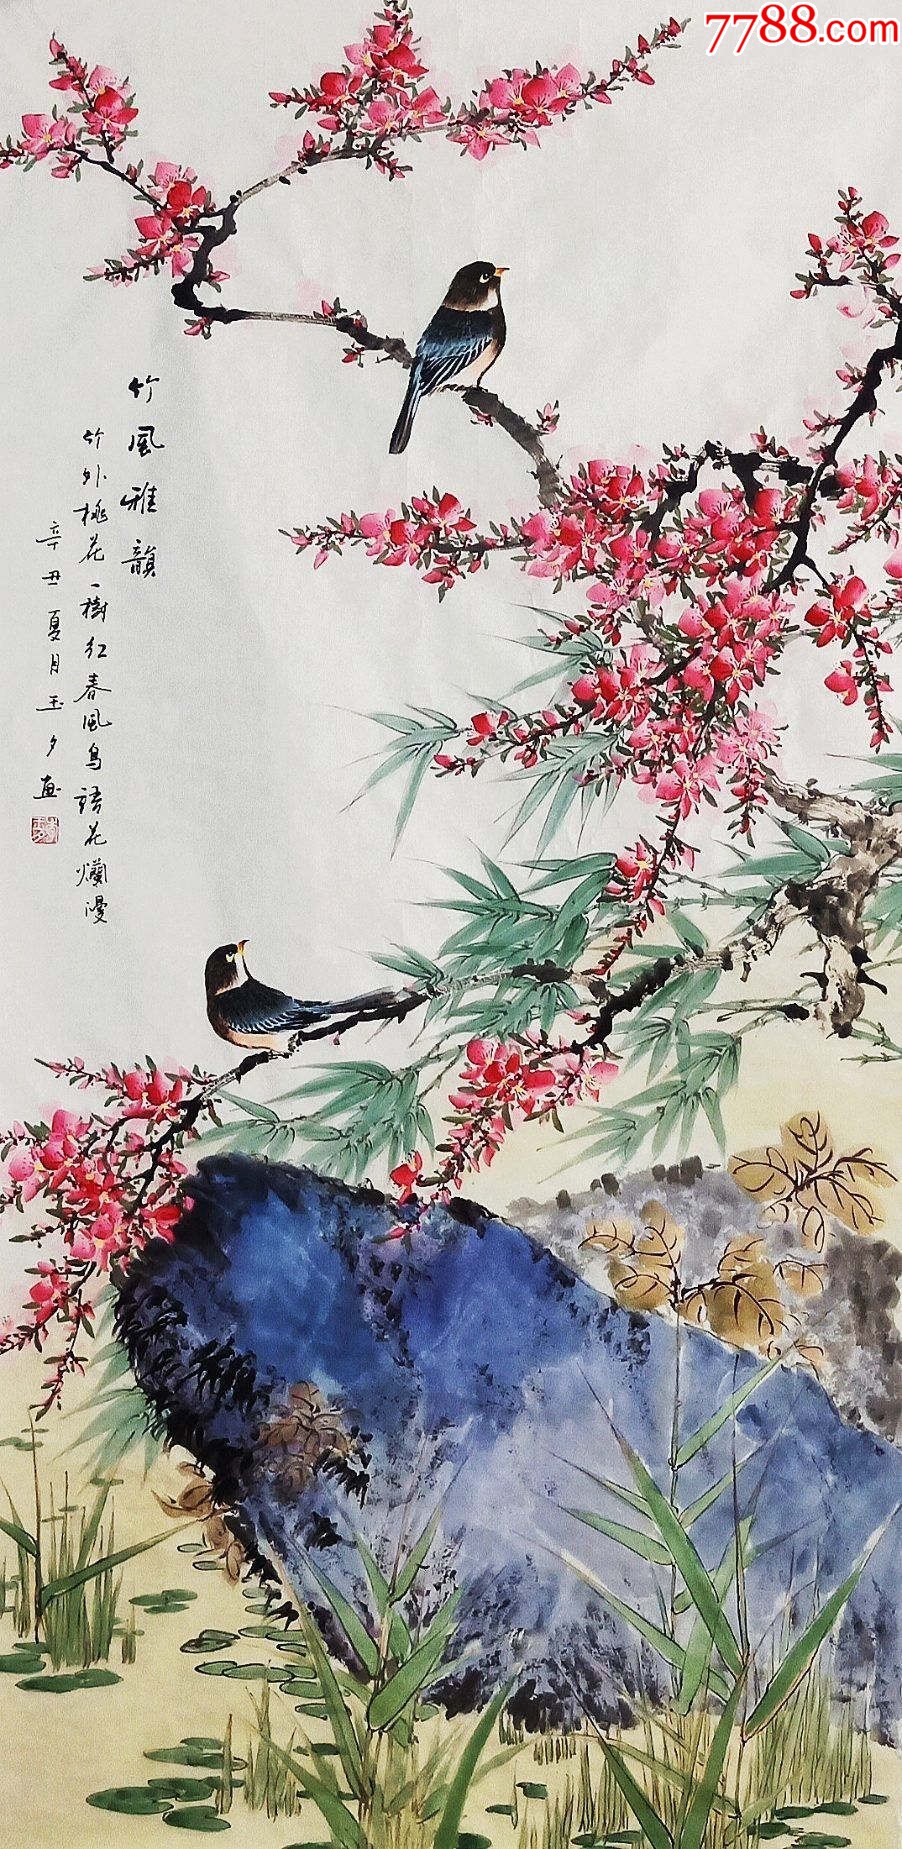 7788.com
竹風雅韻
竹外桃花一樹红春风鸟語花爛漫
辛丑夏月玉夕画